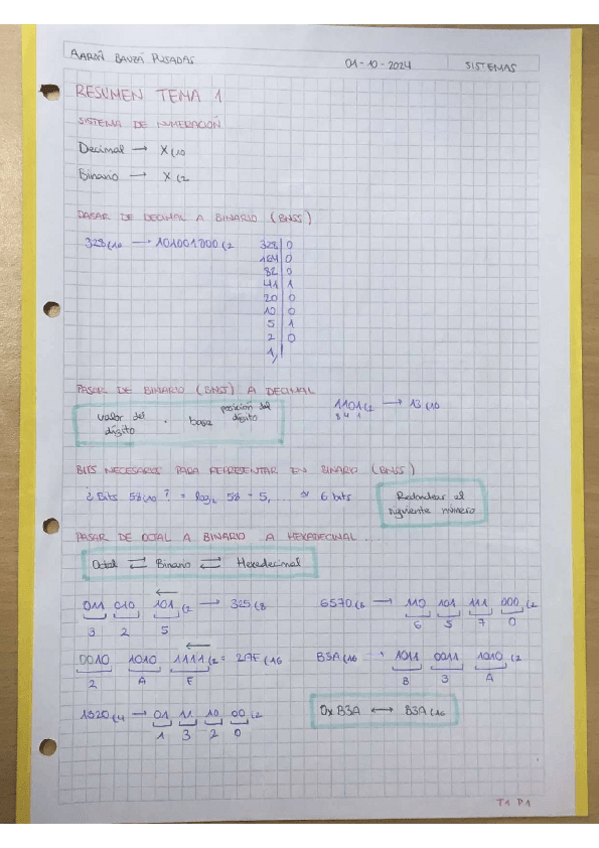 AARÓN BAUZÁ POSADAS 01-10-2024 SISTEMAS
RESUMEN TEMA 1
SISTEMA DE NUMERACIÓN
Decimal → X(10
Binario → X(2
PASAR DE DECIMAL A BINARIO (BNSS)
328(10 → 101001000(2 328 0
164 0
82 0
41 1
20 0
10 0
5 1
2 0
1
PASAR DE BINARIO (BNSS) A DECIMAL
valor del dígito · base posición del dígito
1101(2 → 13(10
8 4 1
BITS NECESARIOS PARA REPRESENTAR EN BINARIO (BNSS)
¿Bits 58(10? = log2 58 = 5,... ≈ 6 bits
Redondear al
siguiente número
PASAR DE OCTAL A BINARIO A HEXADECIMAL.
Octal ⇄ Binario ⇄ Hexadecimal
011 010 101(2 → 325(8 6570(8 → 110 101 111 000(2
3 2 5 6 5 7 0
0010 1010 1111(2 = 2AF(16 B3A(16 → 1011 0011 1010(2
2 A F B 3 A
1320(4 → 01 11 10 00(2 0x B3A ↔ B3A(16
1 3 2 0
T1 P1